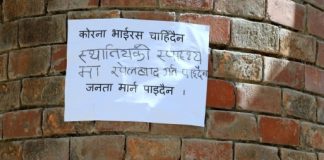 कोरना भाईरस चाहिदैन
स्थानियको स्वास्थ्य
मा खेलबाड गर्न पाइदैन
जनता मार्न पाइदैन ।